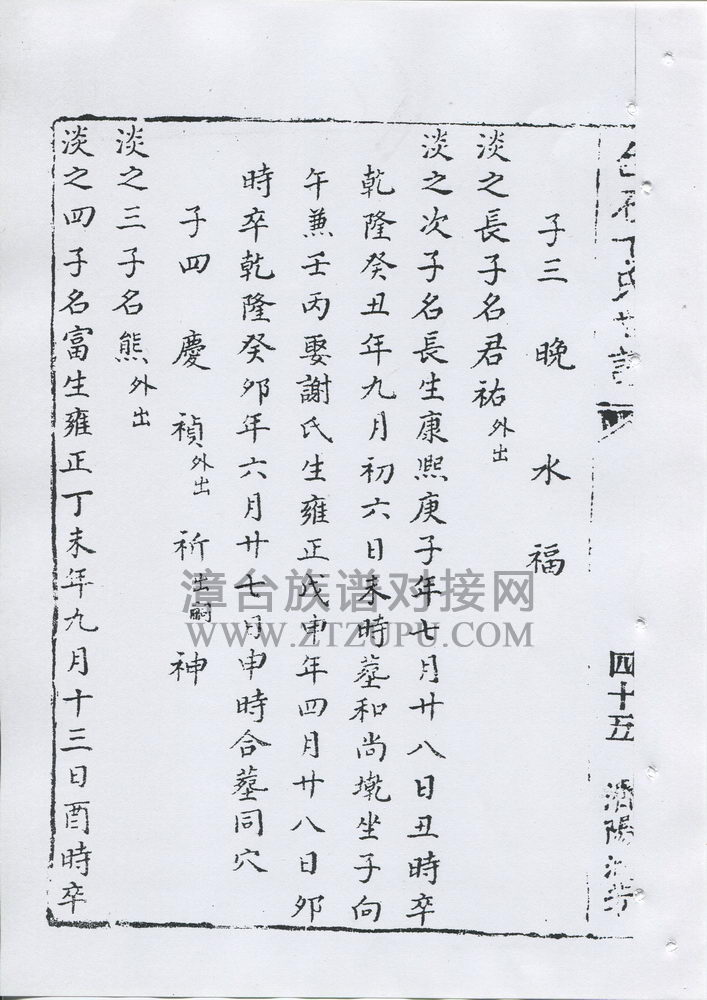 四十五
子三 晚 水 福
淡之長子名君祐外出
淡之次子名長生康熙庚子年七月廿八日丑時卒
乾隆癸丑年九月初六日未時墓和尚墘坐子向
午兼壬丙娶謝氏生雍正戊申年四月廿八日卯
時卒乾隆癸卯年六月廿七月申時合墓同穴
子四 慶 禎外出 祈出嗣 神
淡之三子名熊外出
淡之四子名富生雍正丁未年九月十三日酉時卒
漳台族谱对接网
WWW.ZTZUPU.COM